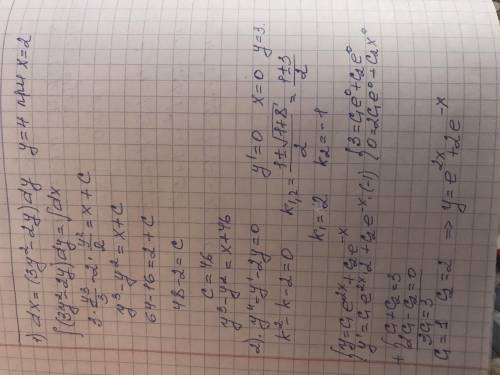 1) dx = (3y²-2y) dy   y=4 при x=2
∫(3y²-2y)dy = ∫dx
3·y³/3 - 2·y²/2 = x+C
y³-y² = x+C
64-16 = 2+C
48-2 = C
C = 46
y³-y² = x+46
2). y''-y'-2y=0   y'=0   x=0   y=3.
k²-k-2=0   k₁,₂ = (1±√1+8)/2 = (1±3)/2
k₁=2   k₂=-1
{y=C₁e²ˣ+C₂e⁻ˣ
{y'=C₁e²ˣ·2+C₂e⁻ˣ·(-1)   {3=C₁e⁰+C₂e⁰
{0=2C₁e⁰-C₂e⁰
+{C₁+C₂=3
{2C₁-C₂=0
3C₁=3
C₁=1   C₂=2   ⇒ y=e²ˣ+2e⁻ˣ